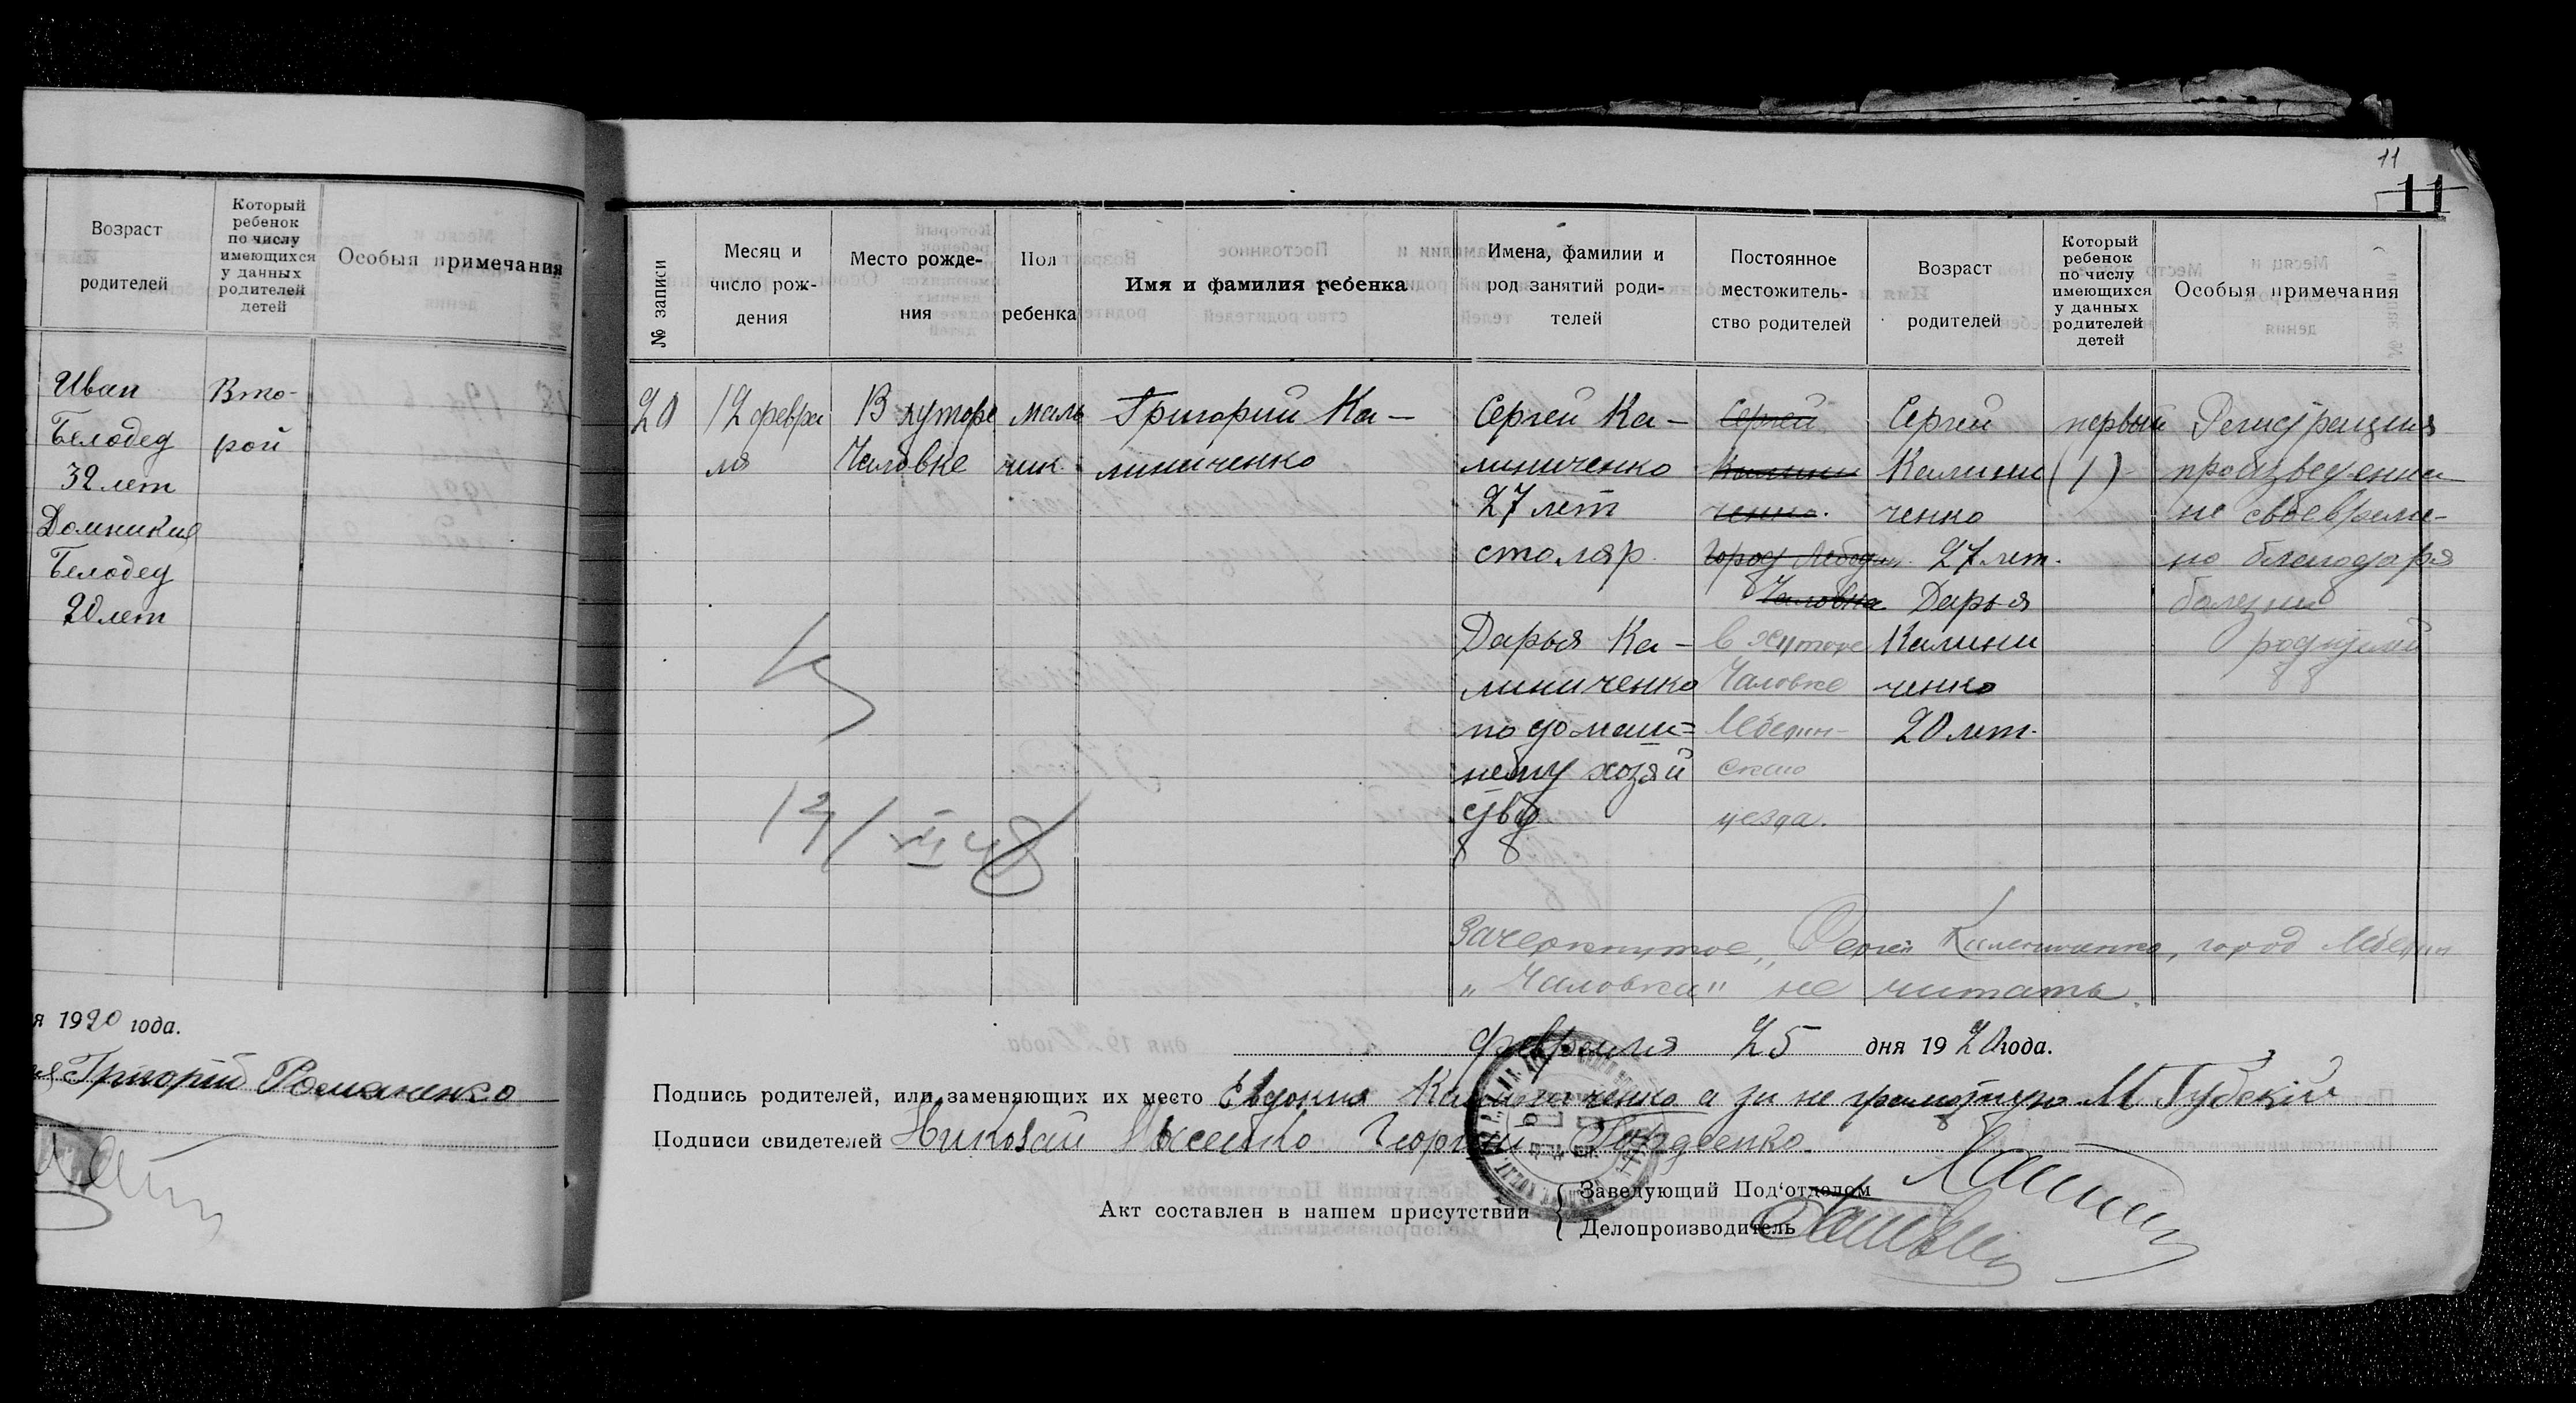 Возраст
родителей
Который
ребенок
по числу
имеющихся
у данных
родителей
детей
Особыя примечания
Иван
Белодед
32 лет
Домникия
Белодед
20 лет
Вто-
рой
я 1920 года.
Григорий Романенко
11
11
№ записи
Месяц и
число рож-
дения
Место рожде-
ния
Пол
ребенка
Имя и фамилия ребенка
Имена, фамилии и
род занятий роди-
телей
Постоянное
местожитель-
ство родителей
Возраст
родителей
Который
ребенок
по числу
имеющихся
у данных
родителей
детей
Особыя примечания
20
12 февра
ля
В хуторе
Чаловке
маль
чик
Григорий Ка-
линиченко
Сергей Ка-
линиченко
27 лет
столяр
Дарья Ка-
линиченко
по домаш=
нему хозяй
ству
Сергей
Калини
ченко.
город Лебедин
Чаловка
в хуторе
Чаловке
Лебедин-
скаго
уезда.
Сергей
Калини
ченко
27 лет.
Дарья
Калини
ченко
20 лет.
первый
(1)
Регистрация
произведенна
не своевреме-
но благодаря
болезни
родителей
Зачеркнутое „Сергей Калениченко, город Лебедин
"Чаловка" не читать.
февраля 25 дня 1920 года.
Подпись родителей, или заменяющих их место Евдокия Калиниченко а за не грамотную М Губский
Подписи свидетелей Николай Георгий Гордеенко.
Акт составлен в нашем присутствии
Заведующий Под'отделом
Делопроизводитель